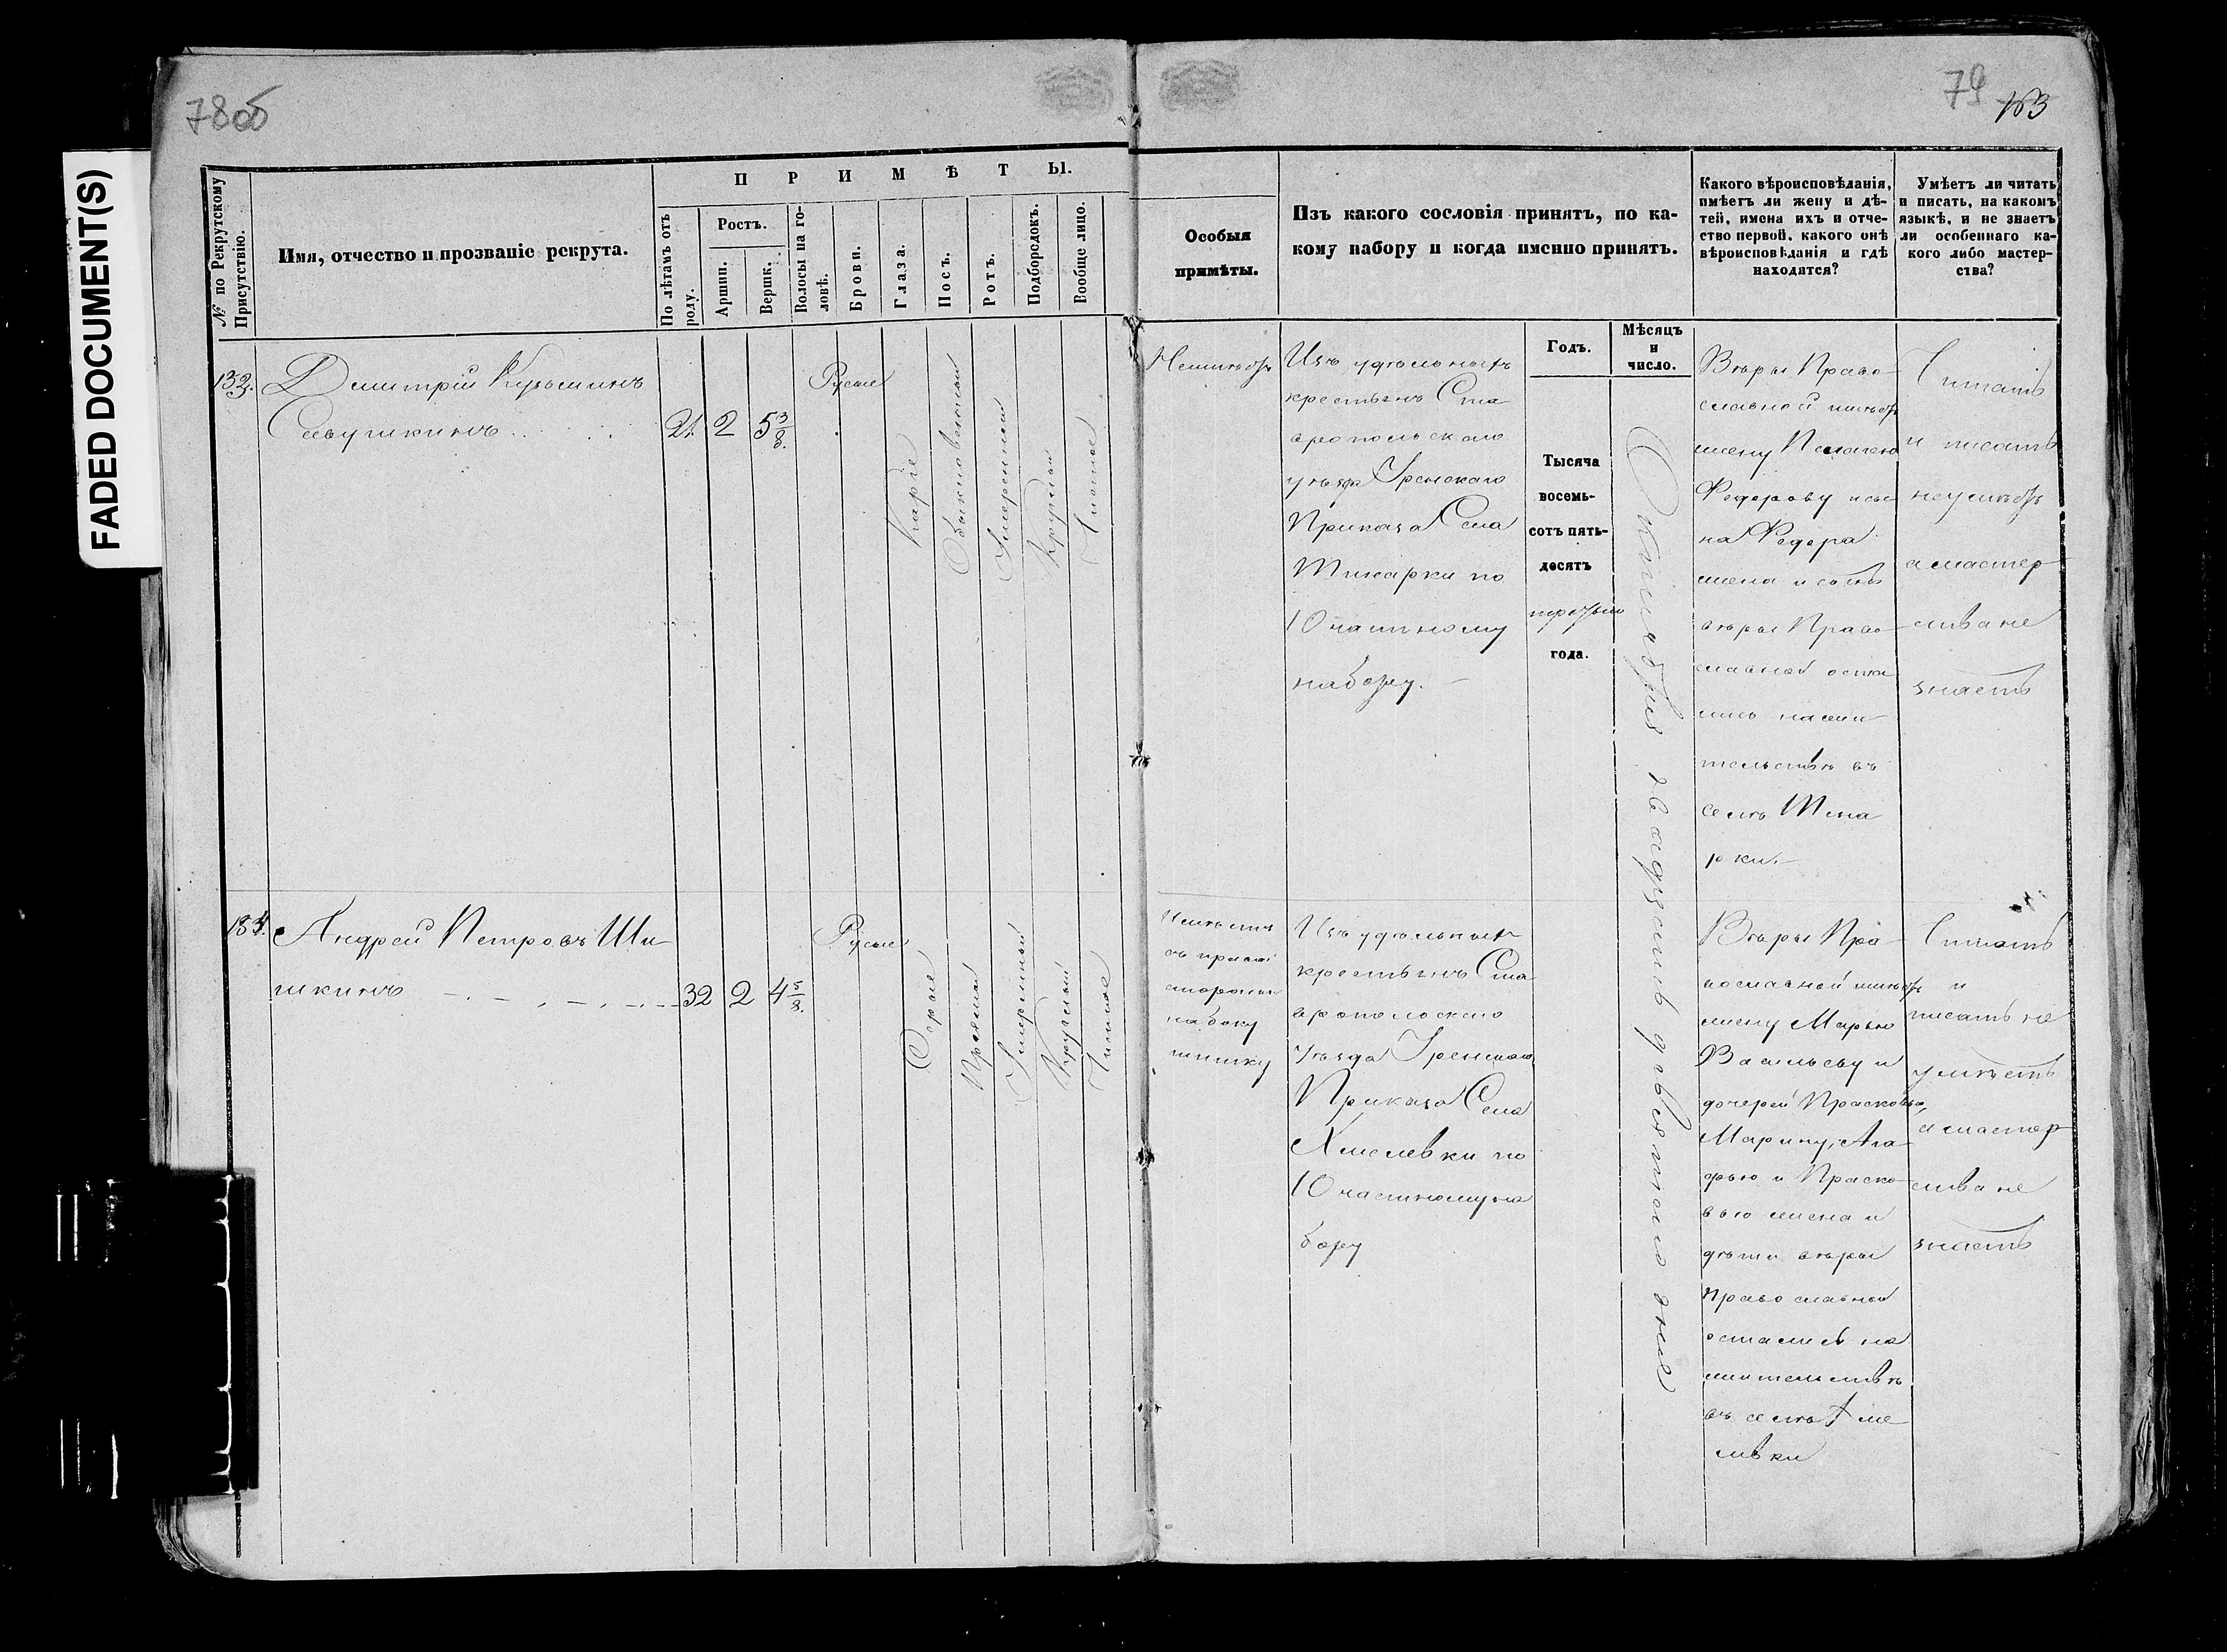 78об
79
163
FADED DOCUMENT(S)
№ по Рекрутскому Присутствію.
Имя, отчество и прозваніе рекрута.
ПРИМѢТЫ.
По лѣтамъ отъ роду.
Ростъ.
Аршин.
Вершк.
Волосы на головѣ.
Брови.
Глаза.
Носъ.
Ротъ.
Подбородокъ.
Вообще лицо.
Особыя
примѣты.
Изъ какого сословія принятъ, по ка-
кому набору и когда именно принятъ.
Какого вѣроисповѣданія,
имѣетъ ли жену и дѣ-
тей, имена ихъ и отче-
ство первой, какого онѣ
вѣроисповѣданія и гдѣ
находятся?
Умѣетъ ли читать
и писать, на какомъ
языкѣ, и не знаетъ
ли особеннаго ка-
кого либо мастер-
ства?
Годъ.
Мѣсяцъ
и
число.
132.
Дмитрій Кузьминъ
Савушкинъ
21.
2
5 3/8.
Русые
Карие
Обыкновенный
Умеренный
Круглый
Чистое
Неимѣетъ
Изъ удѣльныхъ
крестьянъ Ста
вропольскаго
уѣзда
Приказа Села
по
10 частному
набору.
Тысяча
восемь-
сотъ пять-
десять
третьяго
года.
Октября двадцать девятаго дня
Вѣры Право
славной имѣетъ
жену Пелагею
Федорову и сы
на Федора
жена и сынъ
вѣры Право
славной оста
лись на жи
тельствѣ въ
селѣ
рки.
Читать
и писать
неумѣетъ
а мастер
ства не
знаетъ
134.
Андрей Петровъ Ши
шкинъ
32
2
4 5/8.
Русые
Серые
Прямый
Умеренный
Круглый
Чистое
Имѣетъ
съ правой
стороны
на боку
шишку
Изъ удѣльныхъ
крестьянъ Ста
вропольскаго
Уѣзда
Приказа Села
Хмелевки по
10 частному на
бору
Вѣры Пра
вославной имѣетъ
жену Марью
Васильеву и
дочерей Прасковью,
Марину, Ага
фью и Праско
вью жена и
дѣти вѣры
православной
остались на
жительствѣ
въ селѣ Хме
левки
Читать
и
писать не
умѣетъ
а мастер
ства не
знаетъ